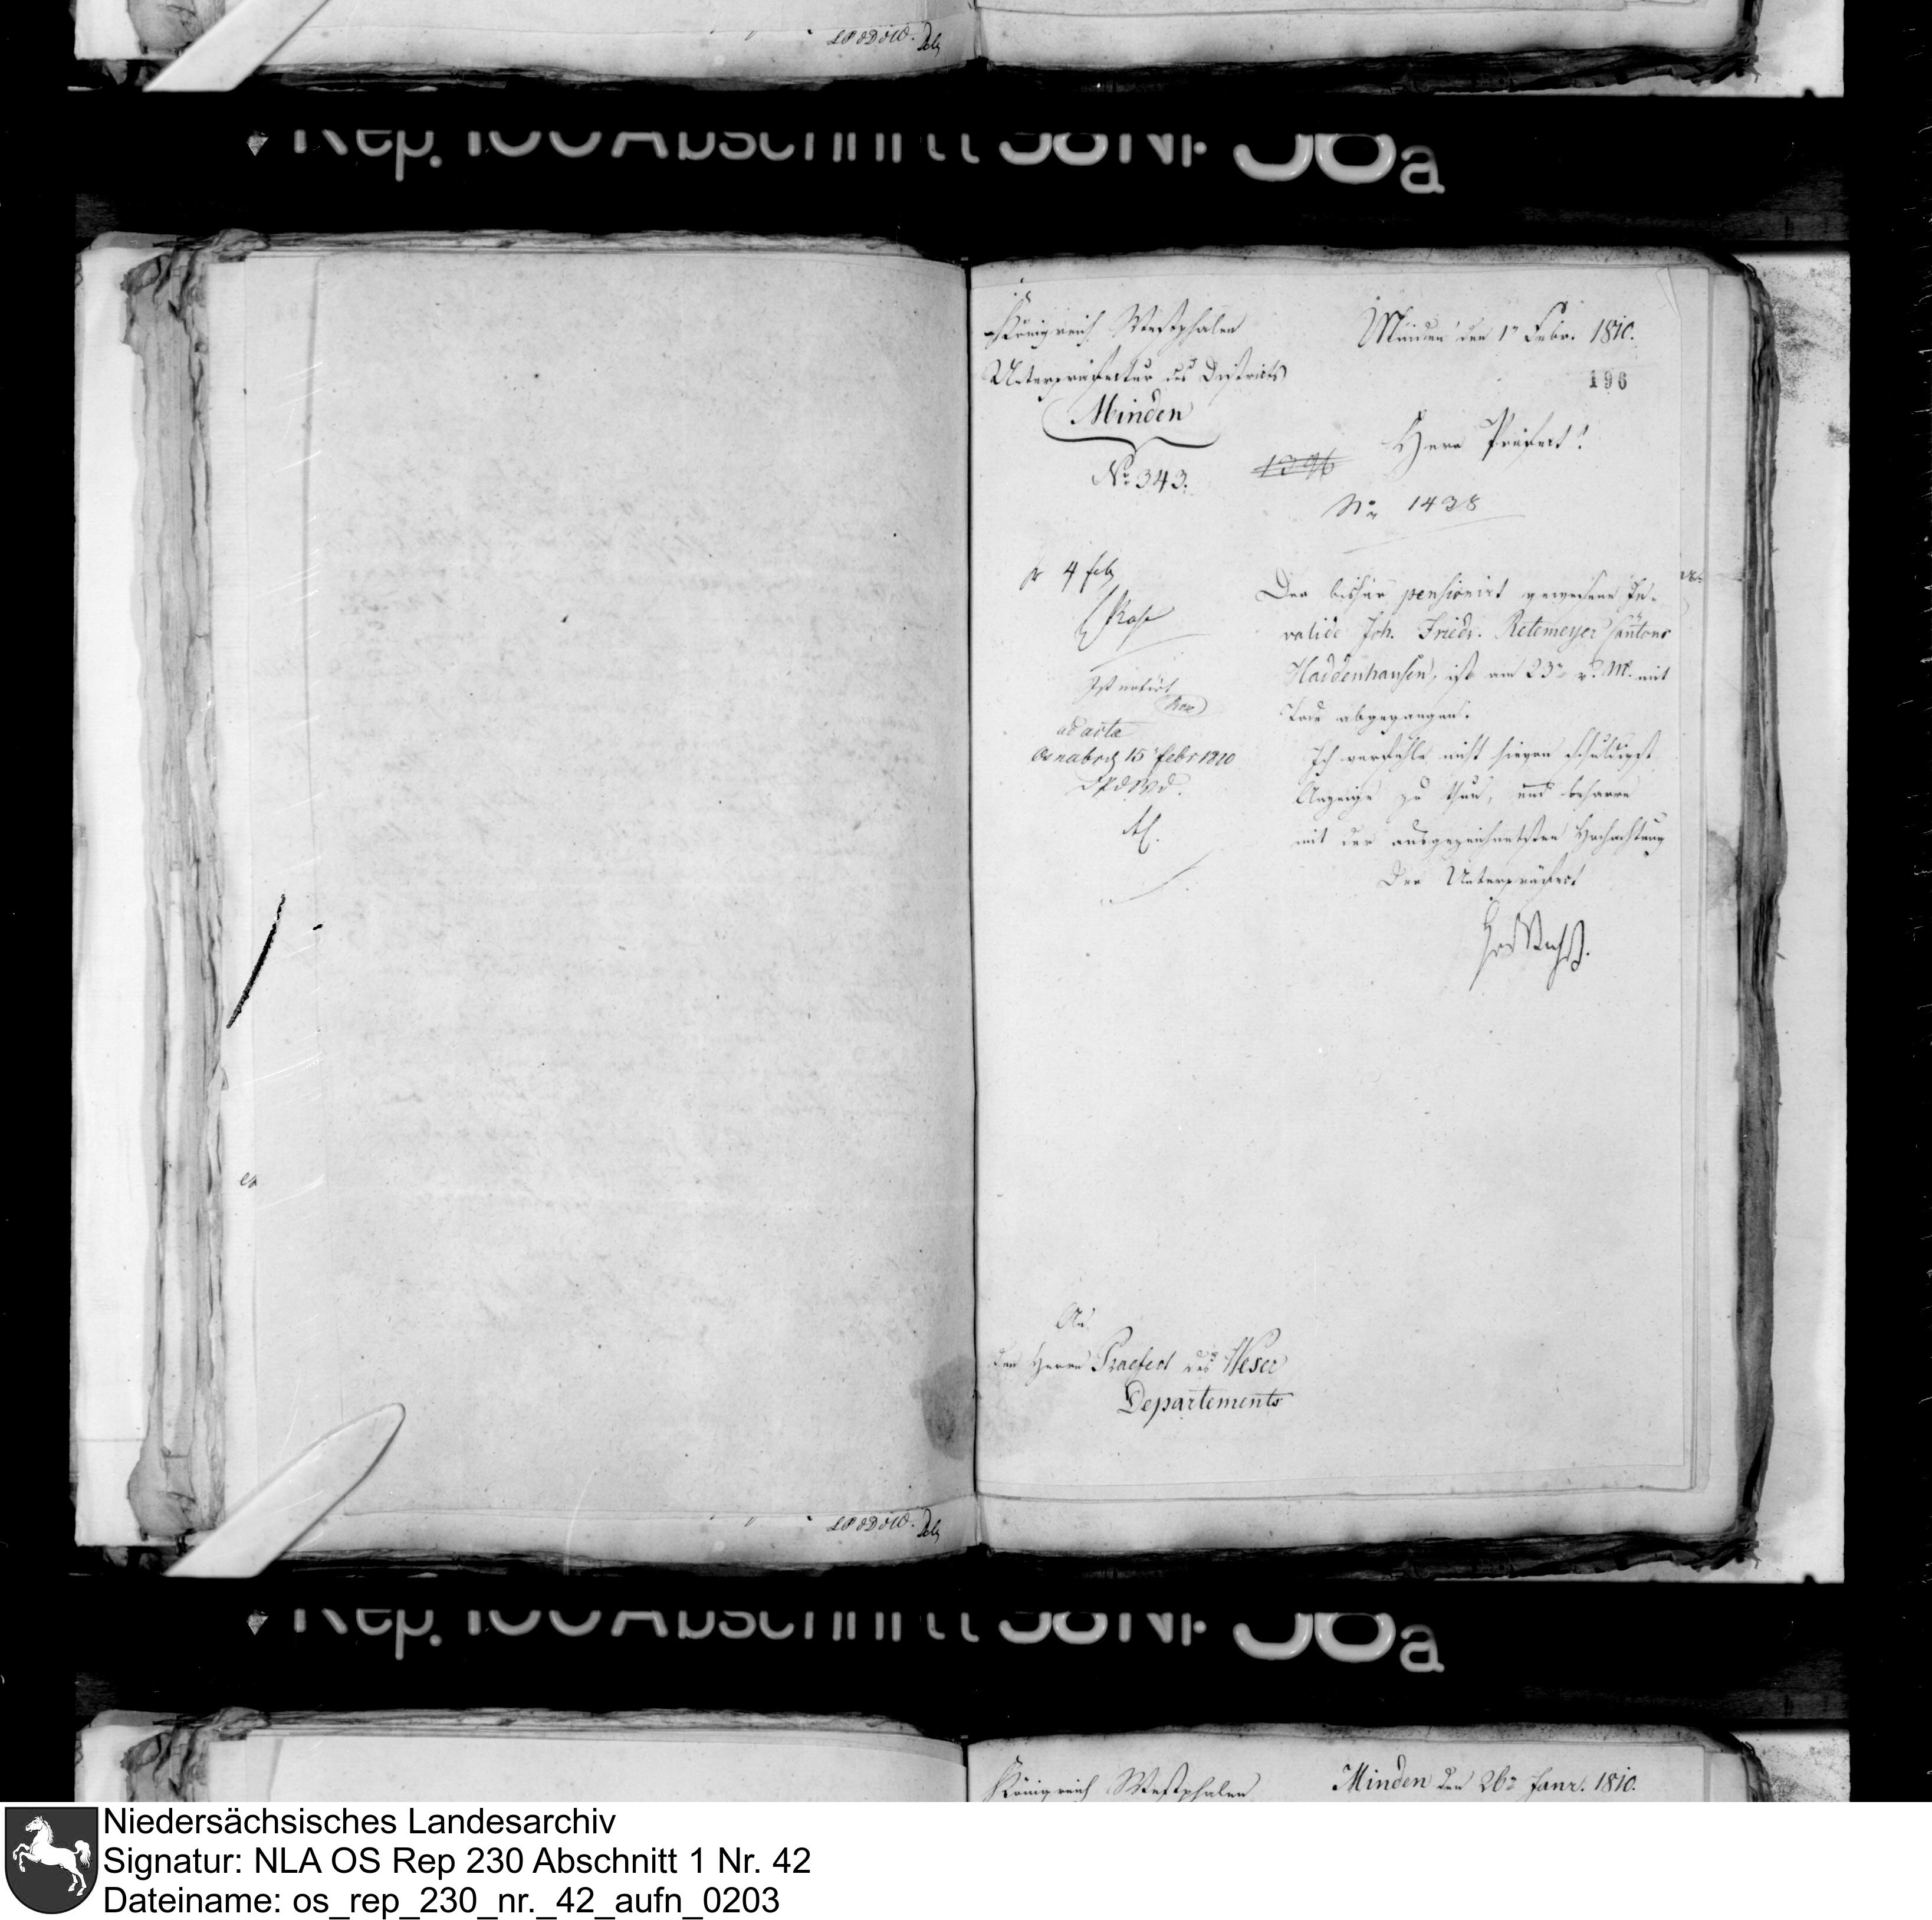 LPdDdW.
Rep. 100 Abschnitt 58 Nr 36a
Königreich Westphalen
Unterpräfectur des Districts
Minden
No 343.
Minden den 1n Febr. 1810.
196
Herr Präfect!
1396
No 1438
pr 4 feb
Ist notirt
ad acta
Osnabrck 15 febr 1810
DPdWD.
Der bisher pensionirt gewesene In-
valide Joh. Friedr. Retemeyer Cantons
Haddenhausen, ist am 23n v. M. mit
Tode abgegangen.
Ich verfehle nicht hievon schuldigst
Anzeige zu thun, und beharre
mit der ausgezeichnetsten Hochachtung
Der Unterpräfect
An
den Herrn Praefect des Weser
Departements
LPdDdW.
Rep. 100 Abschnitt 58 Nr 36a
Königreich Westphalen
Minden den 26n Janr. 1810.
Niedersächsisches Landesarchiv
Signatur: NLA OS Rep 230 Abschnitt 1 Nr. 42
Dateiname: os_rep_230_nr._42_aufn_0203